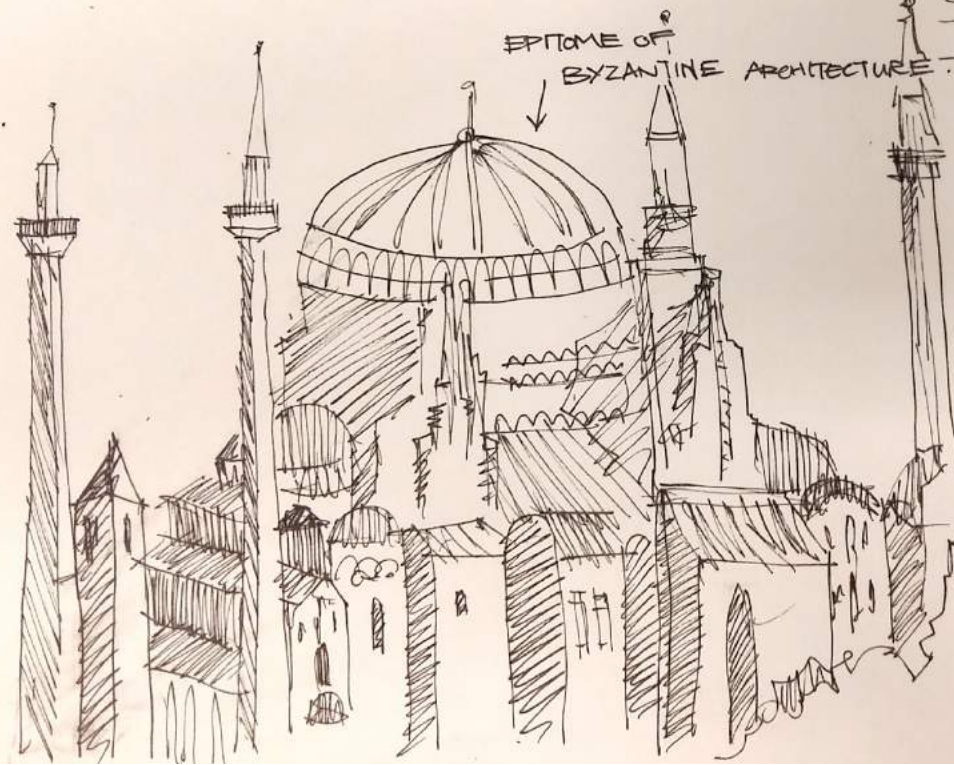 EPITOME OF
BYZANTINE ARCHITECTURE.